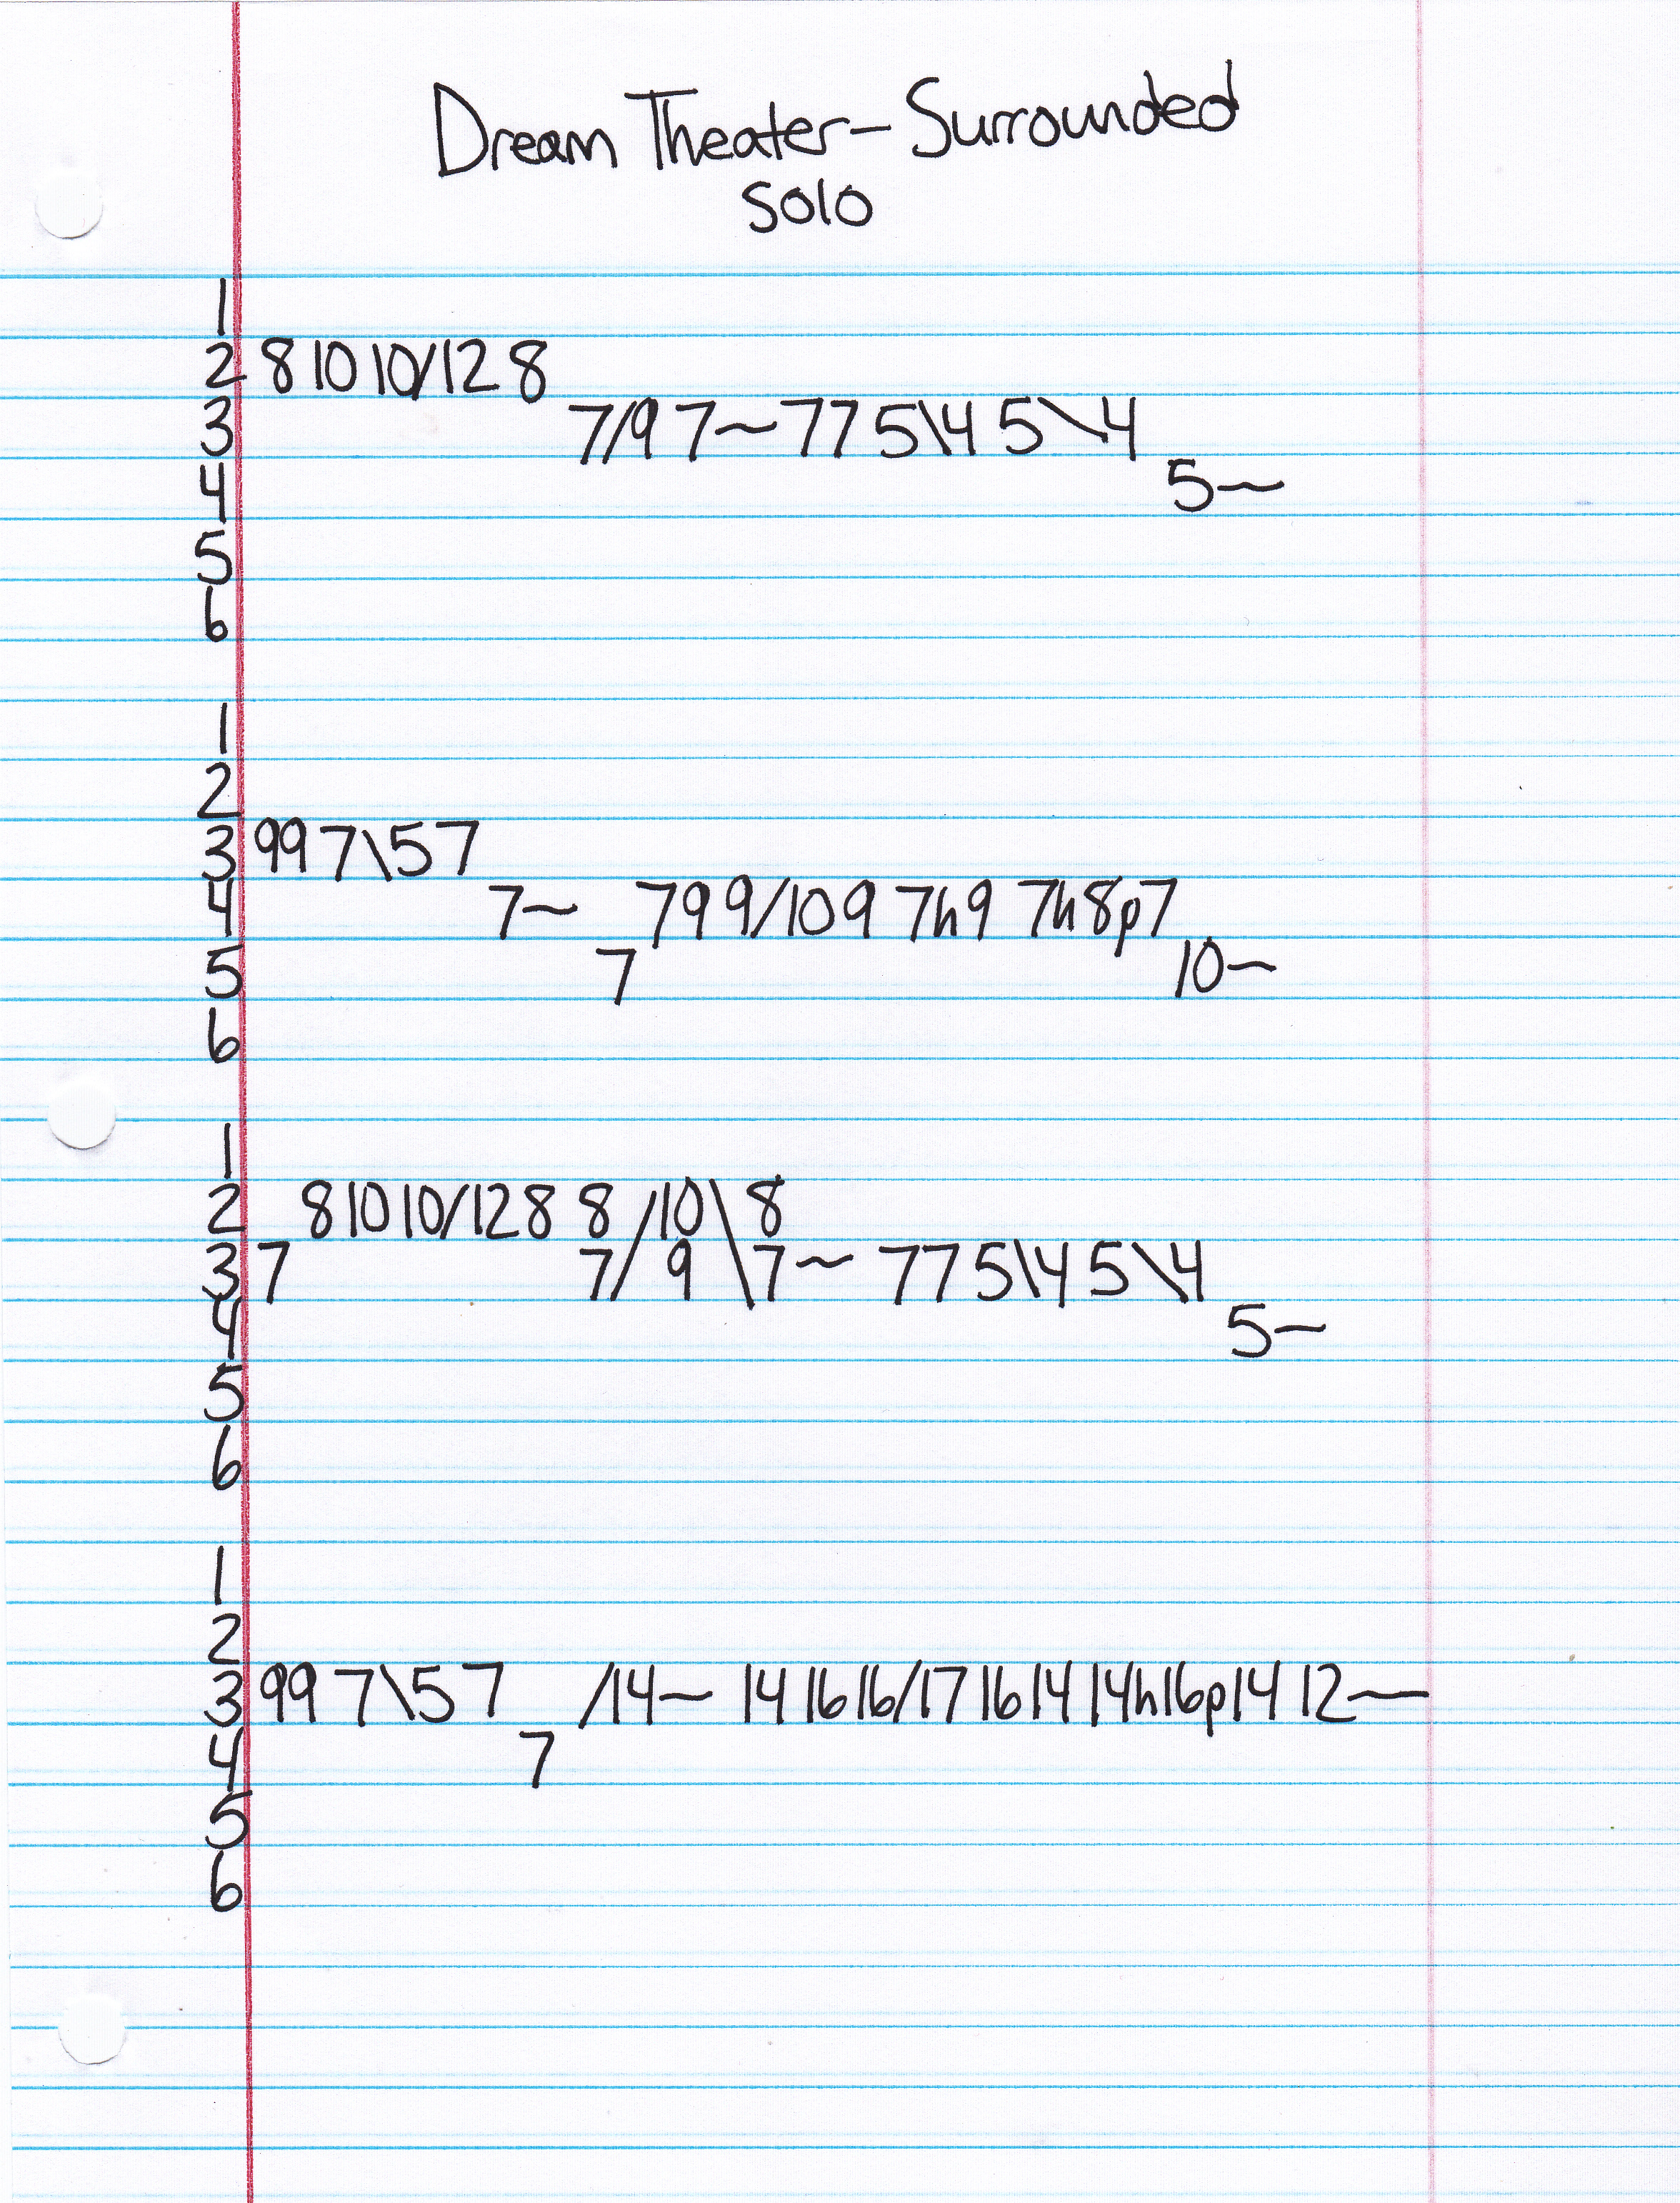 Dream Theater - Surrounded
Solo
1
2 8 10 10/12 8
3 7/9 7~ 7 7 5\4 5\4
4 5~
5
6
1
2
3 9 9 7\5 7
4 7~ 7 9 9/10 9 7h9 7h8p7
5 7 10~
6
1
2 8 10 10/12 8 8 /10\ 8
3 7 7/ 9 \7~ 7 7 5\4 5\4
4 5~
5
6
1
2
3 9 9 7\5 7 /14~ 14 16 16/17 16 14 14h16p14 12~
4 7
5
6